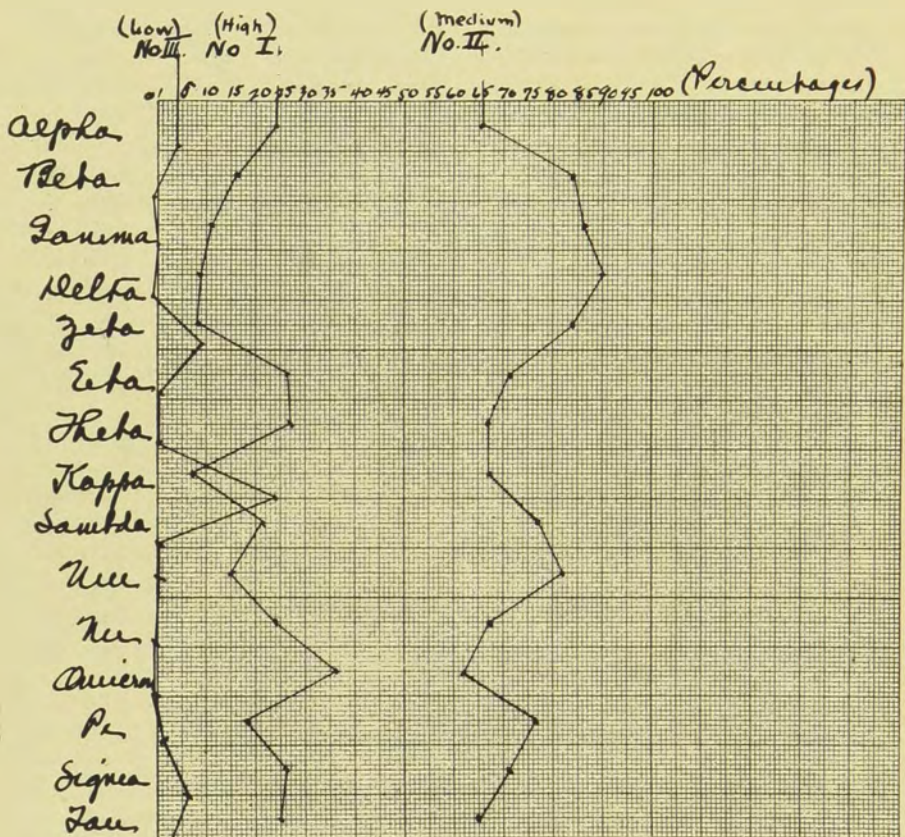 (Low) (High) (Medium)
No III. No I. No. II.
0 1 5 10 15 20 25 30 35 40 45 50 55 60 65 70 75 80 85 90 95 100 (Percentages)
Alpha
Beta
Gamma
Delta
Zeta
Eeta
Theta
Kappa
Lambda
Mu
Nu
Omicron
Pi
Sigma
Tau